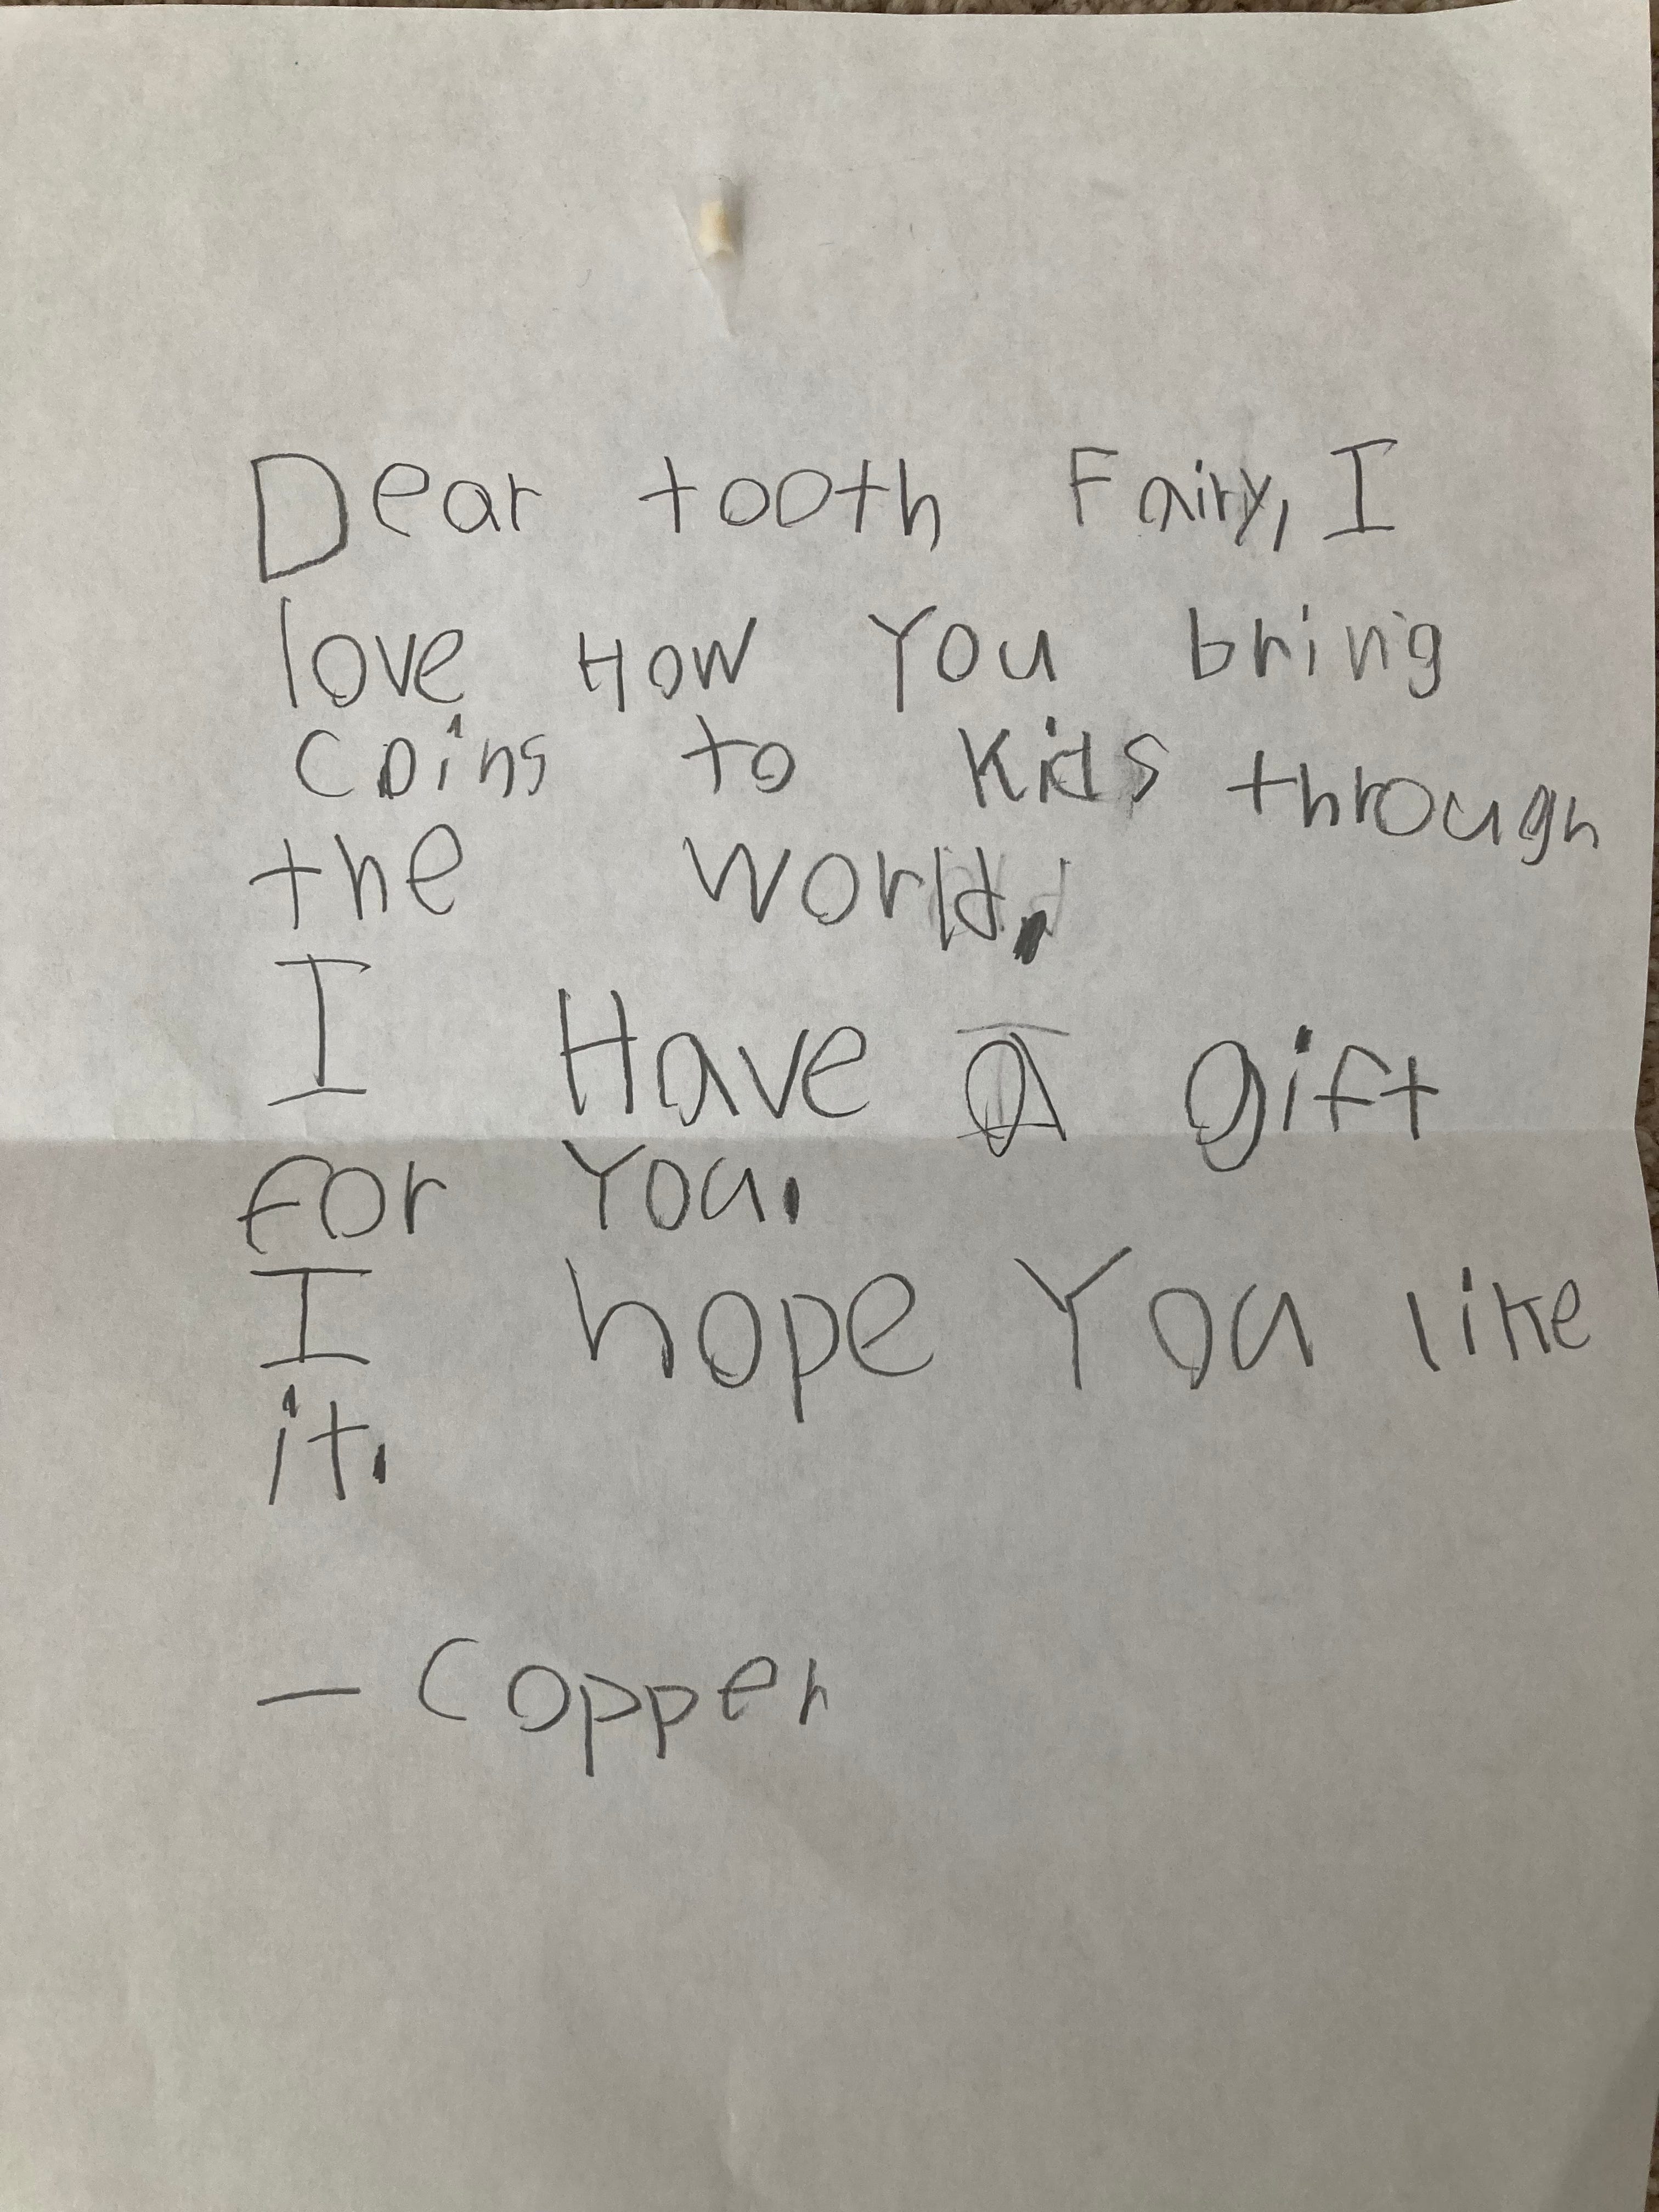 Dear tooth Fairy, I
love How You bring
coins to Kids through
the world.
I Have a gift
for You.
I hope You like
it.
- Copper